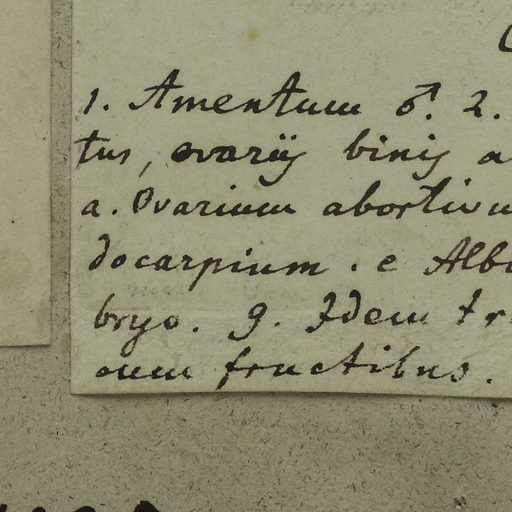 1. Amentum ♂. 2.
tus, ovariis binis a
a. Ovarium abortivu
docarpium. e Albu
bryo. g. Idem tr
cum fructibus.